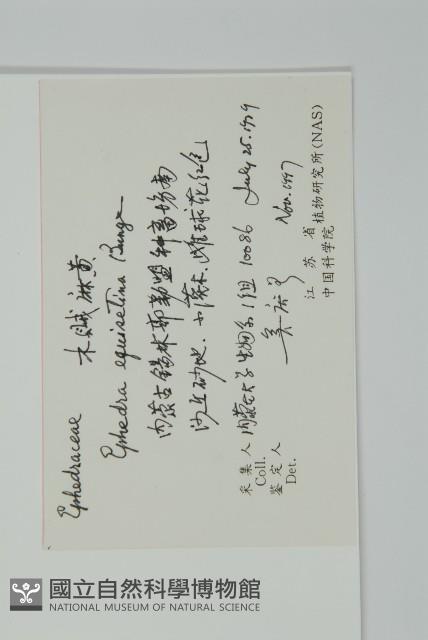 Ephedraceae 木贼麻黄
Ephedra equisetina Bunge
内蒙古锡林郭勒盟种畜场南
沙丘砂地. 小灌木. 雌球花红色
采集人 内蒙古大学生物系1组 10086 July 25. 1979
Coll.
鉴定人 Nov. 1997
Det.
江苏省植物研究所(NAS)
中国科学院
國立自然科學博物館
NATIONAL MUSEUM OF NATURAL SCIENCE